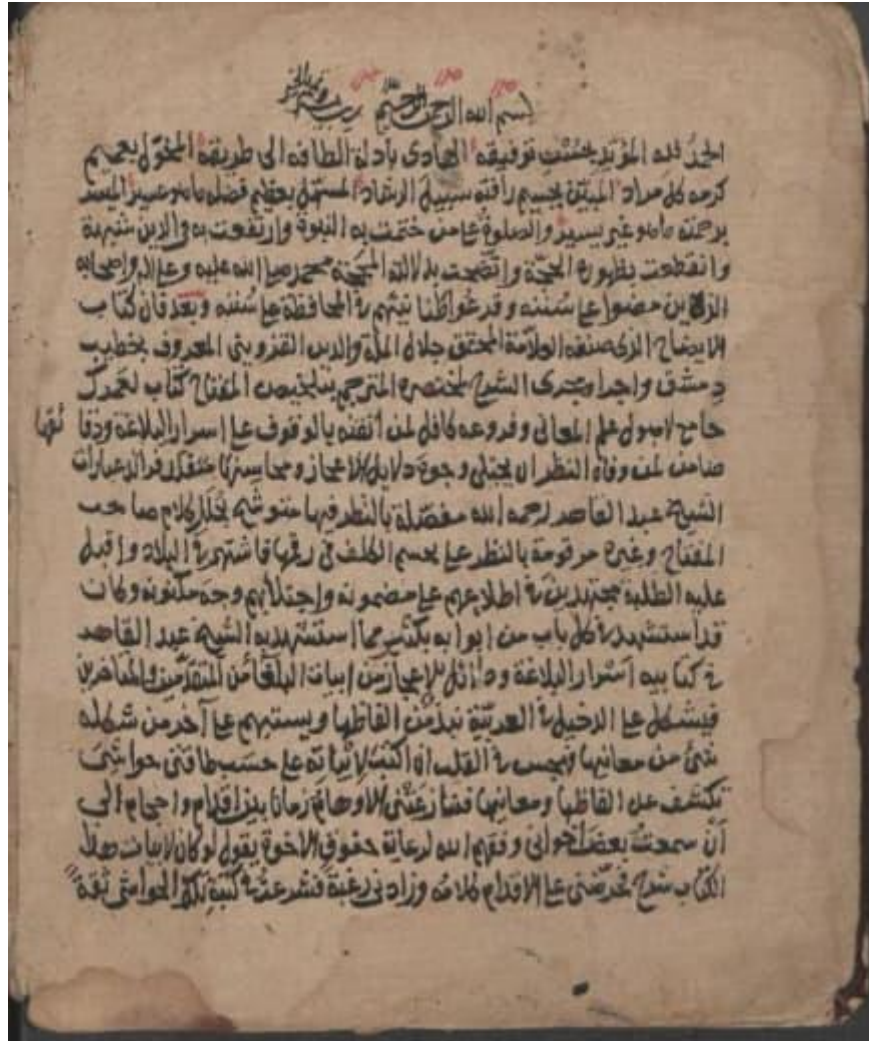 بسم الله الرحمن الرحيم رب يسر وتمم بالخير
الحمد لله المؤيد بحسن توفيقه الهادى بادلة الطافه الى طريقه المخول بعميم
كرمه كل مراد المبين بجسيم رأفته سبيل الرشاد المسهل بعظيم فضله ما هو عسير الميسر
برحمته ما هو غير يسير والصلوة على من ختمت به النبوة وارتفعت به والدين شبهة
وانقطعت بظهوره الحجة واتضحت بدلالته المحجة محمد صلى الله عليه وعلى اله واصحابه
الذين مضوا على سننه وقد غواطنا نيتهم في المحافظة على سننه وبعد فان كتاب
الايضاح الذى صنفه العلامة المحقق جلال الملة والدين القزوينى المعروف بخطيب
دمشق واجراه مجرى الشرح لمختصره المترجم بتلخيص المفتاح كتاب لعمرك
جامع لاصول علم المعانى وفروعه كافل لمن اتقنه بالوقوف على اسرار البلاغة ودقا ئقها
ضامن لمن وفاه النظر ان يجتلى وجوه دلايل الاعجاز ومحاسنها متقلد فرائد عبارات
الشيخ عبد القاهر رحمه الله مفصلة بالنظر فيها متوشح بحلل كلام صاحب
المفتاح وغيره مرقومة بالنظر على بحسم الكلف فى رقمها فاشتهر في البلاد واقبل
عليه الطلبة مجتهدين في اطلاعهم على مضمونه واجتلائهم وجه مكنونه وكان
قد استشهد في كل باب من ابوابه بكثير مما استشهد به الشيخ عبد القاهر
في كتابيه اسرار البلاغة ودلائل الاعجاز من ابيات البلغا من المتقدمين والمتاخرين
فيشكل على الدخيل في العربية نبذ من الفاظها ويستبهم على آخر من شكله
شئ من معانيها فهجس في القلب ان اكتب لابياته على حسب طاقتى حواشى
تكشف عن الفاظها ومعانيها فنازعتنى الاوهام زمانا بين اقدام واحجام الى
ان سمعت بعض اخوانى وفقهم الله لرعاية حقوق الاخوة يقول لو كان لابيات هذا
الكتاب شرح فحرضنى على الاقدام كلامه وزادنى رغبة فشرعت في كتبة تلك الحواشى ثقة